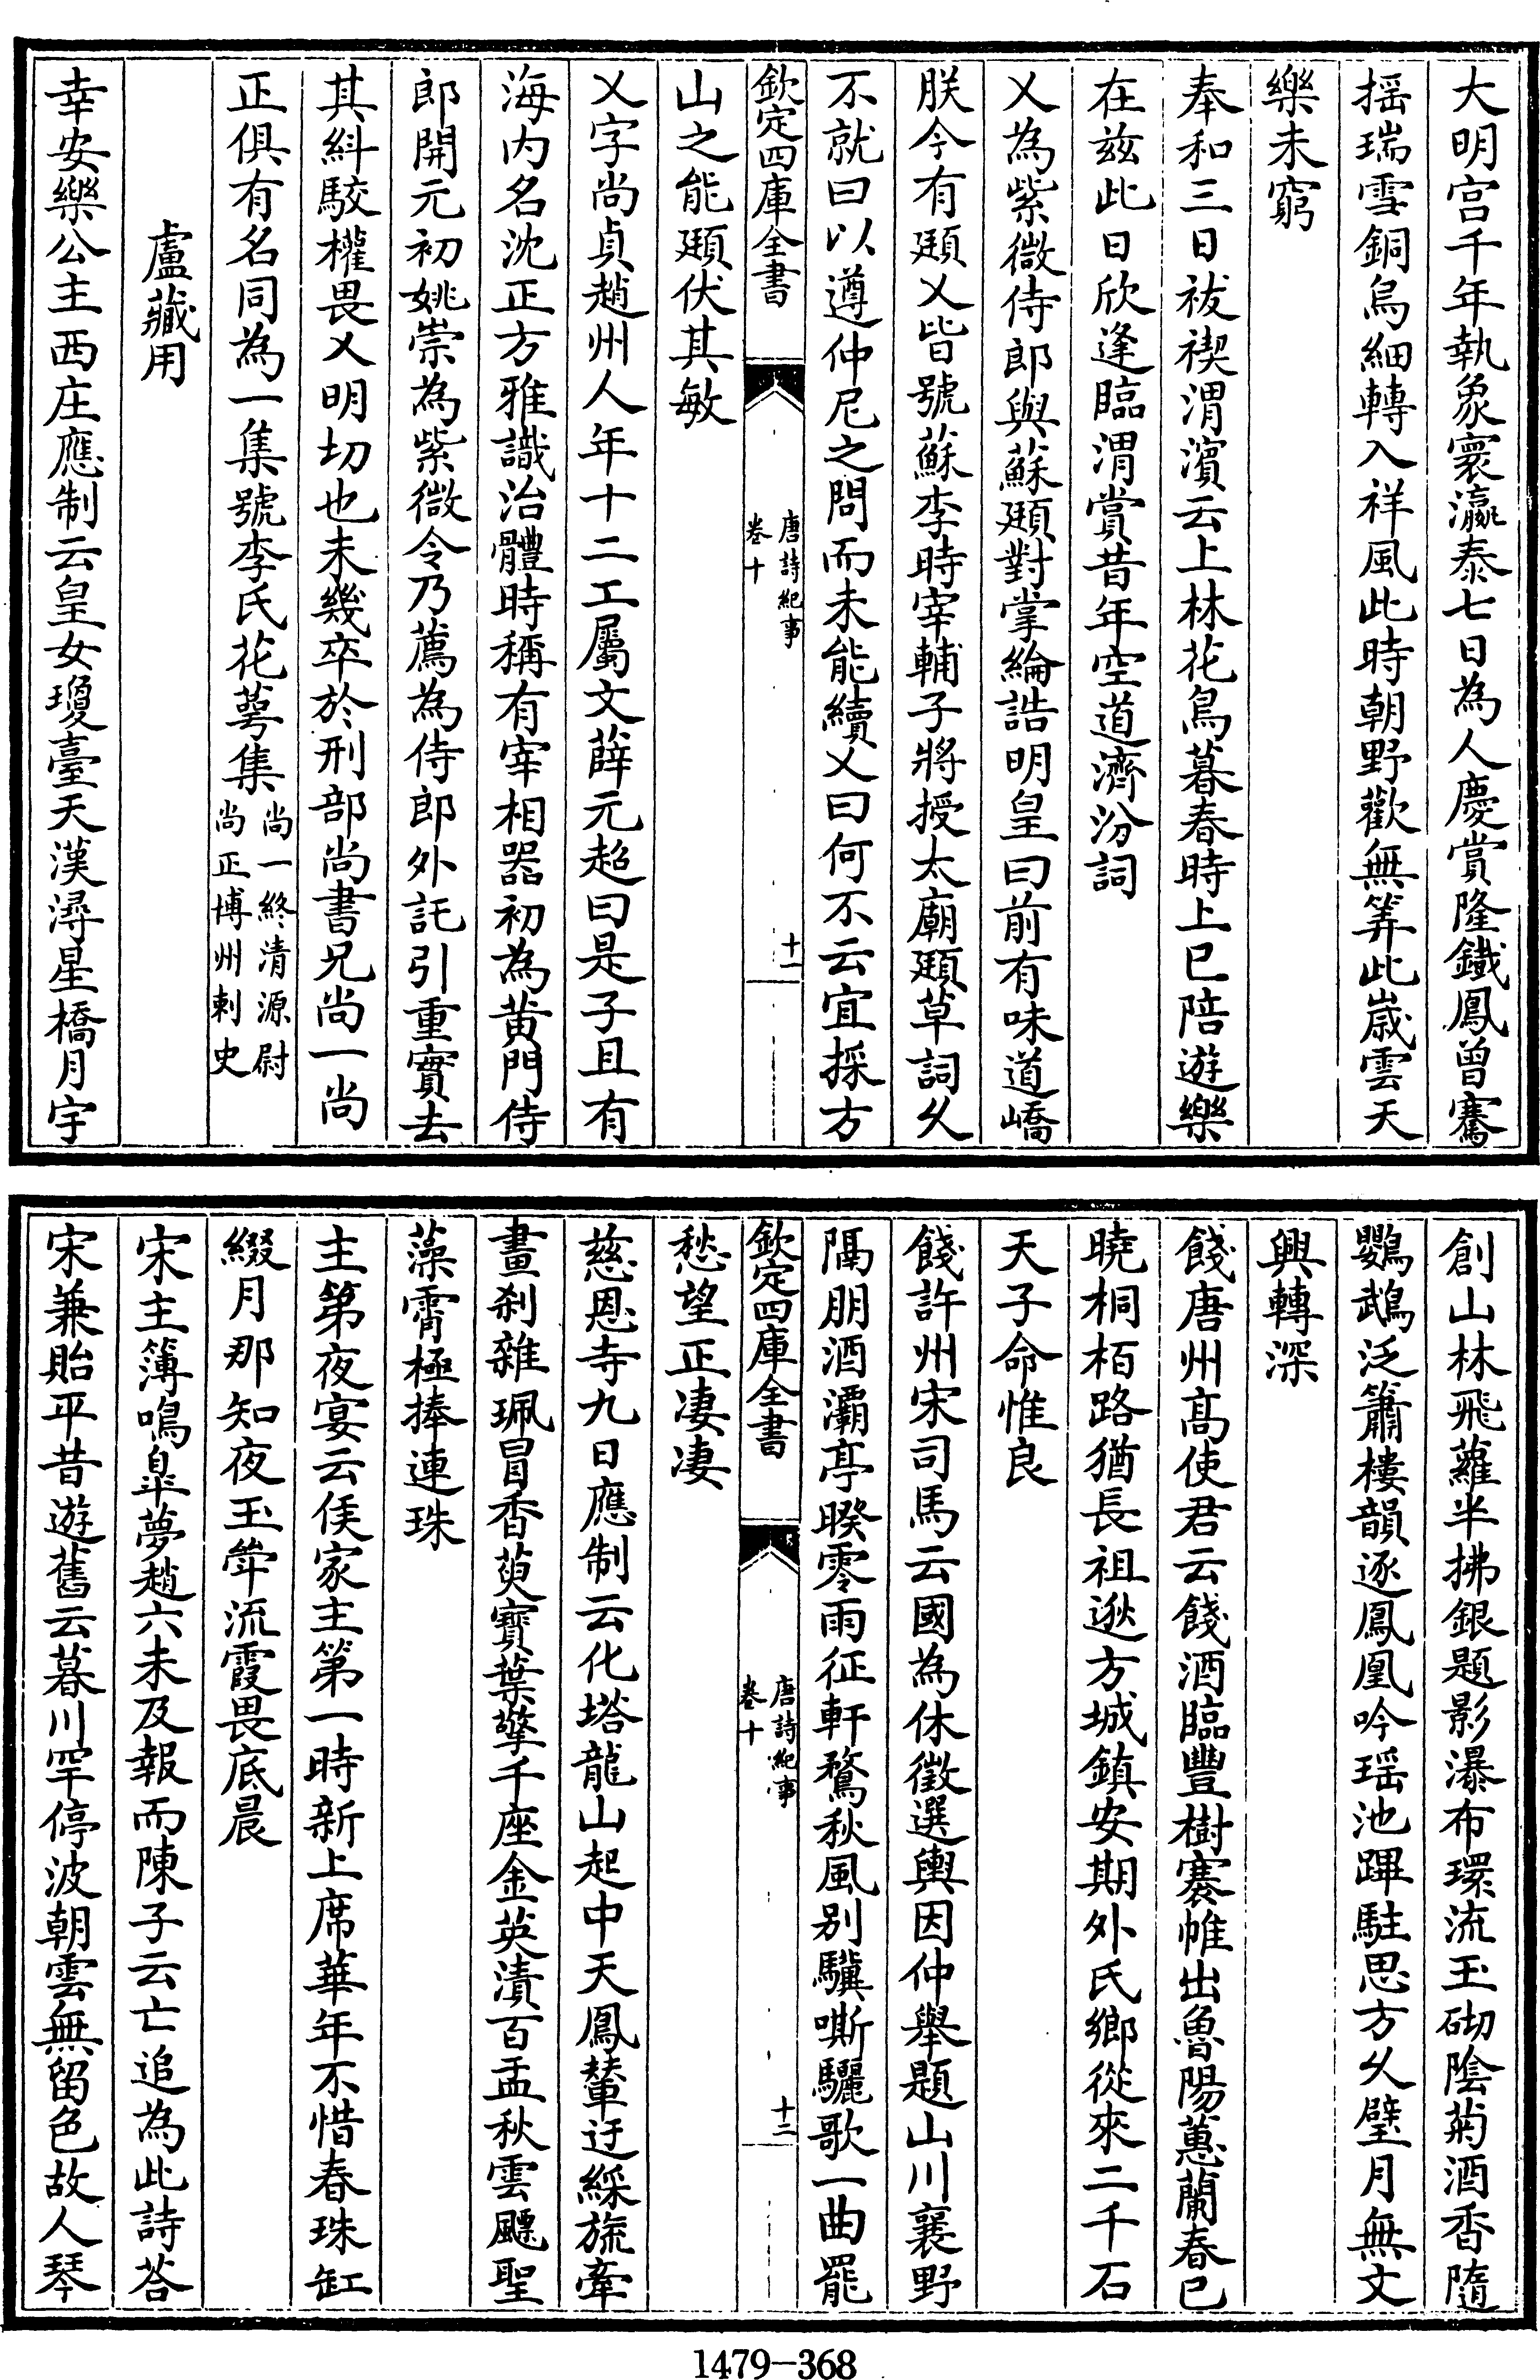 大明宫千年執象寰瀛泰七日為人慶賞隆鐵鳳曾騫
揺瑞雪銅烏細轉入祥風此時朝野歡無筭此歳雲天
樂未窮
奉和三日祓禊渭濱云上林花鳥暮春時上巳陪遊樂
在兹此日欣逢臨渭賞昔年空道濟汾詞
乂為紫微侍郎與蘇頲對掌綸誥明皇曰前有味道嶠
朕今有頲乂皆號蘇李時宰輔子將授太廟頲草詞久
不就曰以遵仲尼之問而未能續乂曰何不云宜採方
欽定四庫全書
唐詩紀事
卷十
十一
山之能頲伏其敏
乂字尚貞趙州人年十二工屬文薛元超曰是子且有
海内名沈正方雅識治體時稱有宰相器初為黄門侍
郎開元初姚崇為紫微令乃薦為侍郎外託引重實去
其糾駮權畏乂明切也未幾卒於刑部尚書兄尚一尚
正俱有名同為一集號李氏花蕚集尚一終清源尉
尚正博州刺史
盧藏用
幸安樂公主西庄應制云皇女瓊臺天漢潯星橋月宇
創山林飛蘿半拂銀題影瀑布環流玉砌陰菊酒香隨
鸚鵡泛簫樓韻逐鳳凰吟瑶池蹕駐思方久璧月無文
興轉深
餞唐州髙使君云餞酒臨豐樹褰帷出魯陽蕙蘭春已
曉桐栢路猶長祖逖方城鎮安期外氏鄉從來二千石
天子命惟良
餞許州宋司馬云國為休徴選輿因仲舉題山川襄野
隔朋酒灞亭暌零雨征軒騖秋風别驥嘶驪歌一曲罷
欽定四庫全書
唐詩紀事
卷十
十二
愁望正凄凄
慈恩寺九日應制云化塔龍山起中天鳳輦迂綵旒牽
畫刹雜珮冒香萸寶葉擎千座金英漬百盂秋雲飄聖
藻霄極捧連珠
主第夜宴云侯家主第一時新上席華年不惜春珠缸
綴月那知夜玉斝流霞畏底晨
宋主簿鳴臯夢趙六未及報而陳子云亡追為此詩荅
宋兼貽平昔遊舊云暮川罕停波朝雲無留色故人琴
1479-368